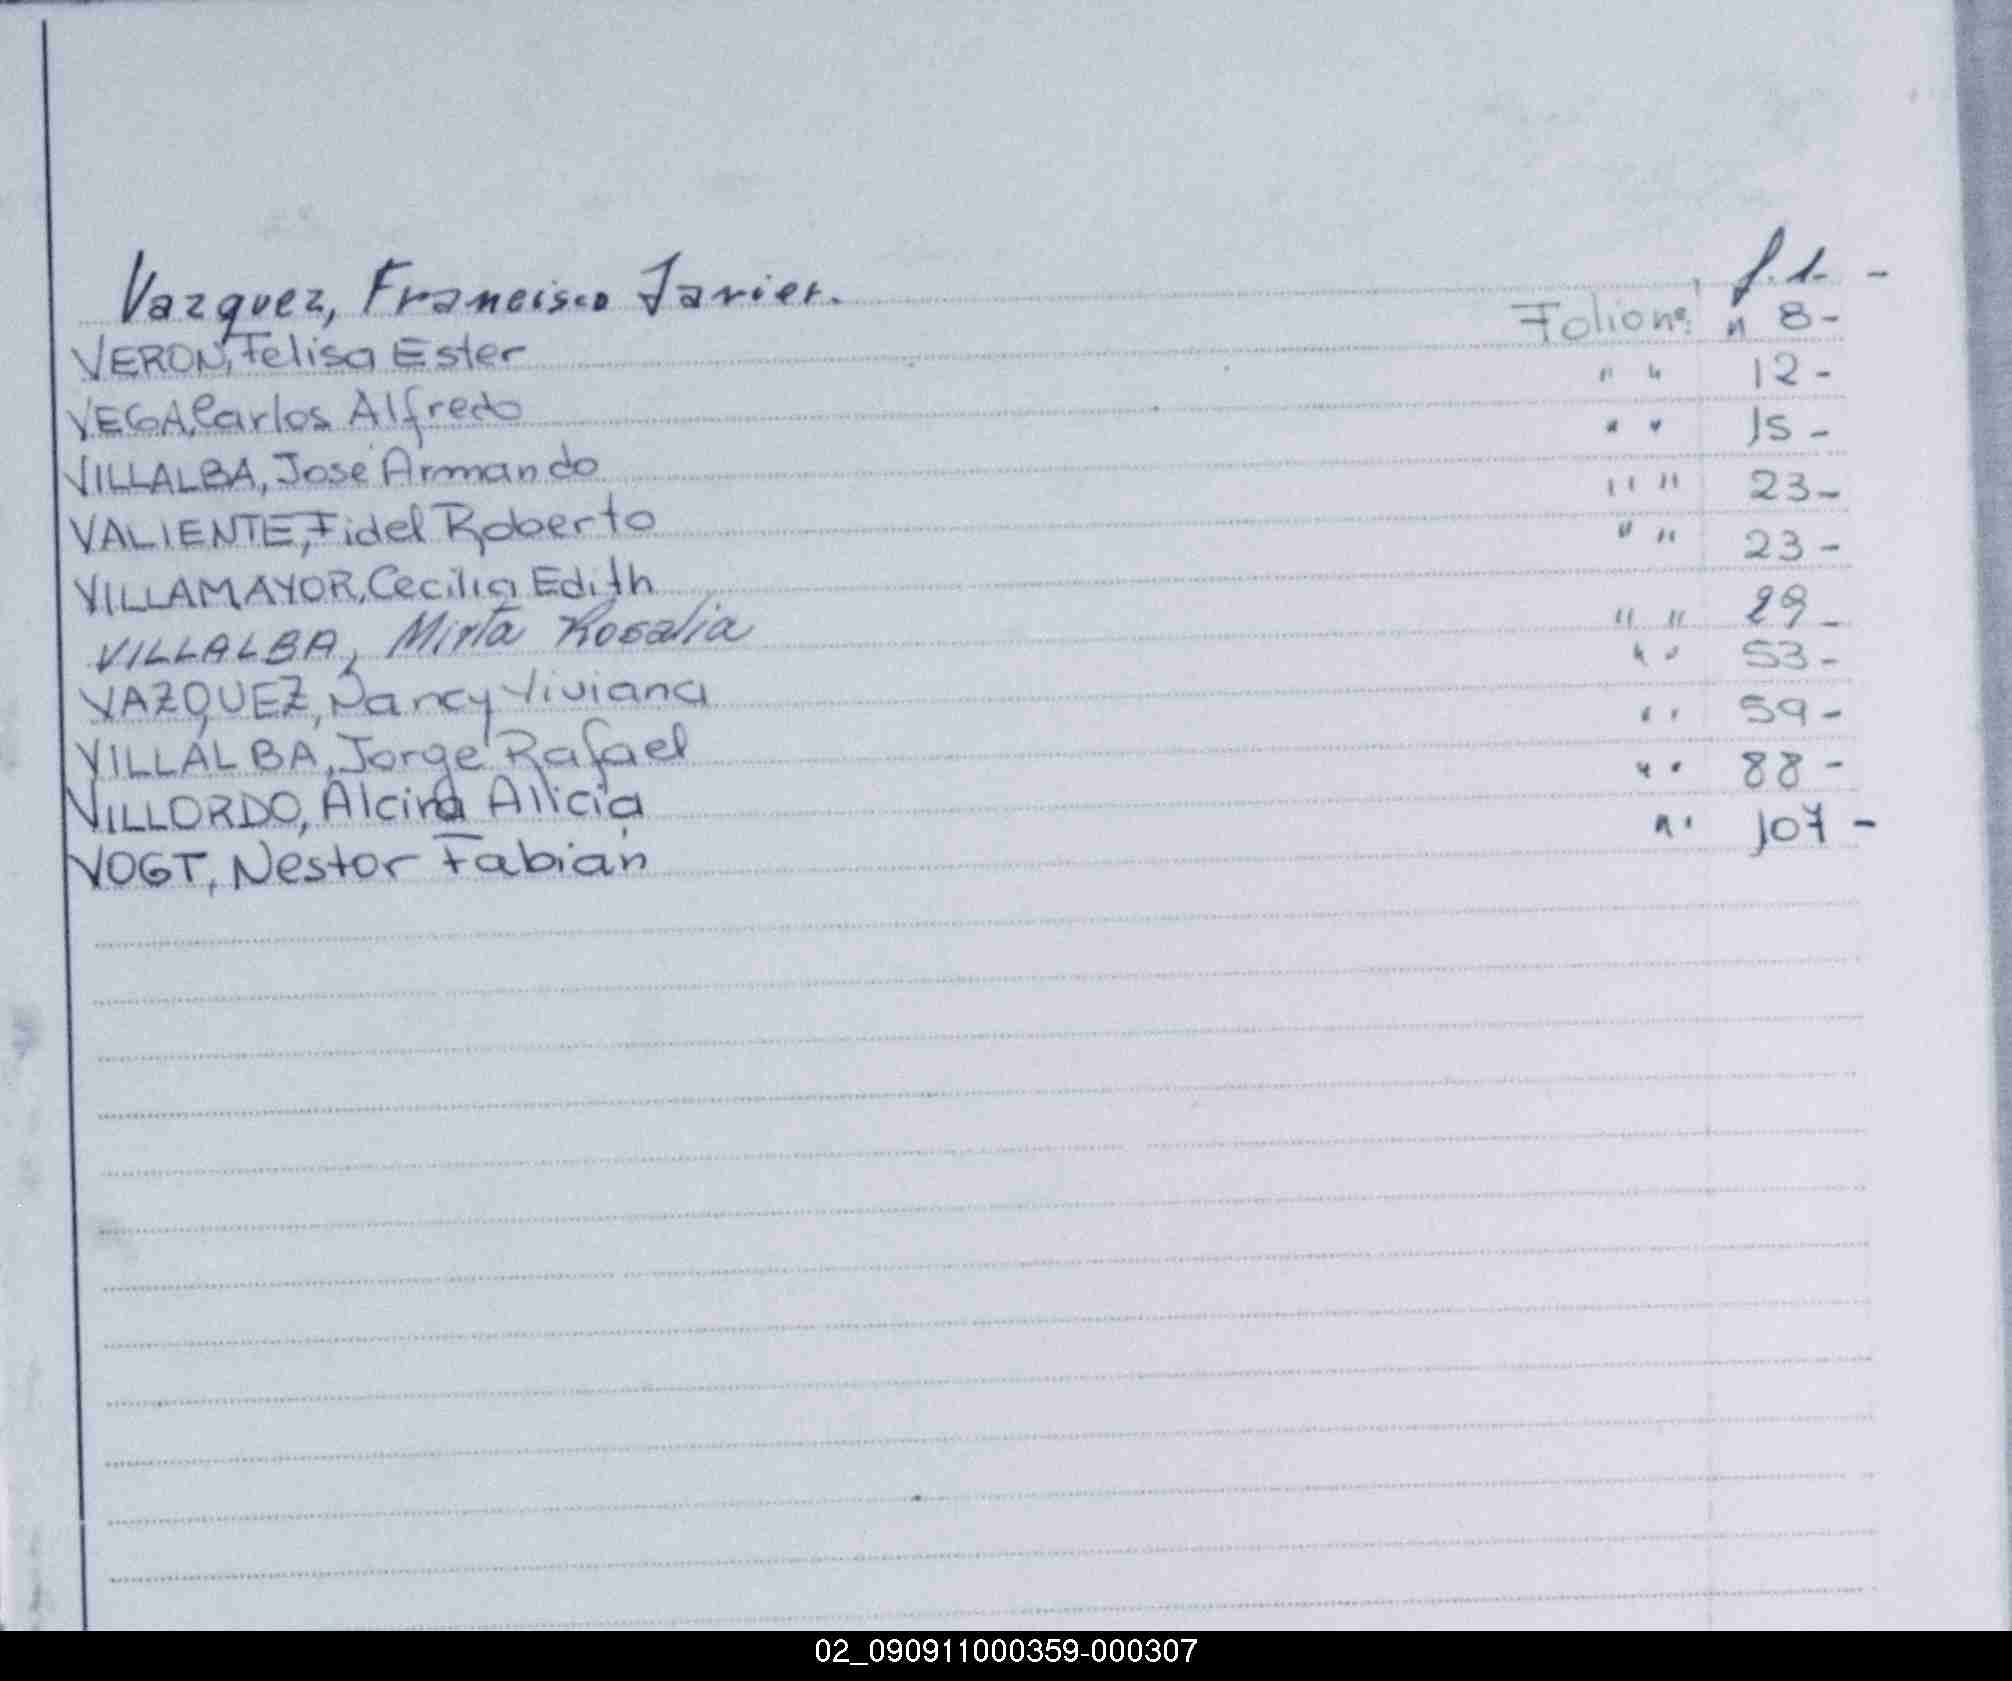 Vazquez, Francisco Javier. f. 1. -
VERON, Felisa Ester Folio nº: " 8 -
VEGA, Carlos Alfredo " " 12 -
VILLALBA, José Armando " " 15 -
VALIENTE, Fidel Roberto " " 23 -
VILLAMAYOR, Cecilia Edith " " 23 -
VILLALBA, Mirta Rosalia " " 29 -
VAZQUEZ, Nancy Viviana " " 53 -
VILLALBA, Jorge Rafael " " 59 -
VILLORDO, Alcira Alicia " " 88 -
VOGT, Nestor Fabián " " 107 -
02_090911000359-000307